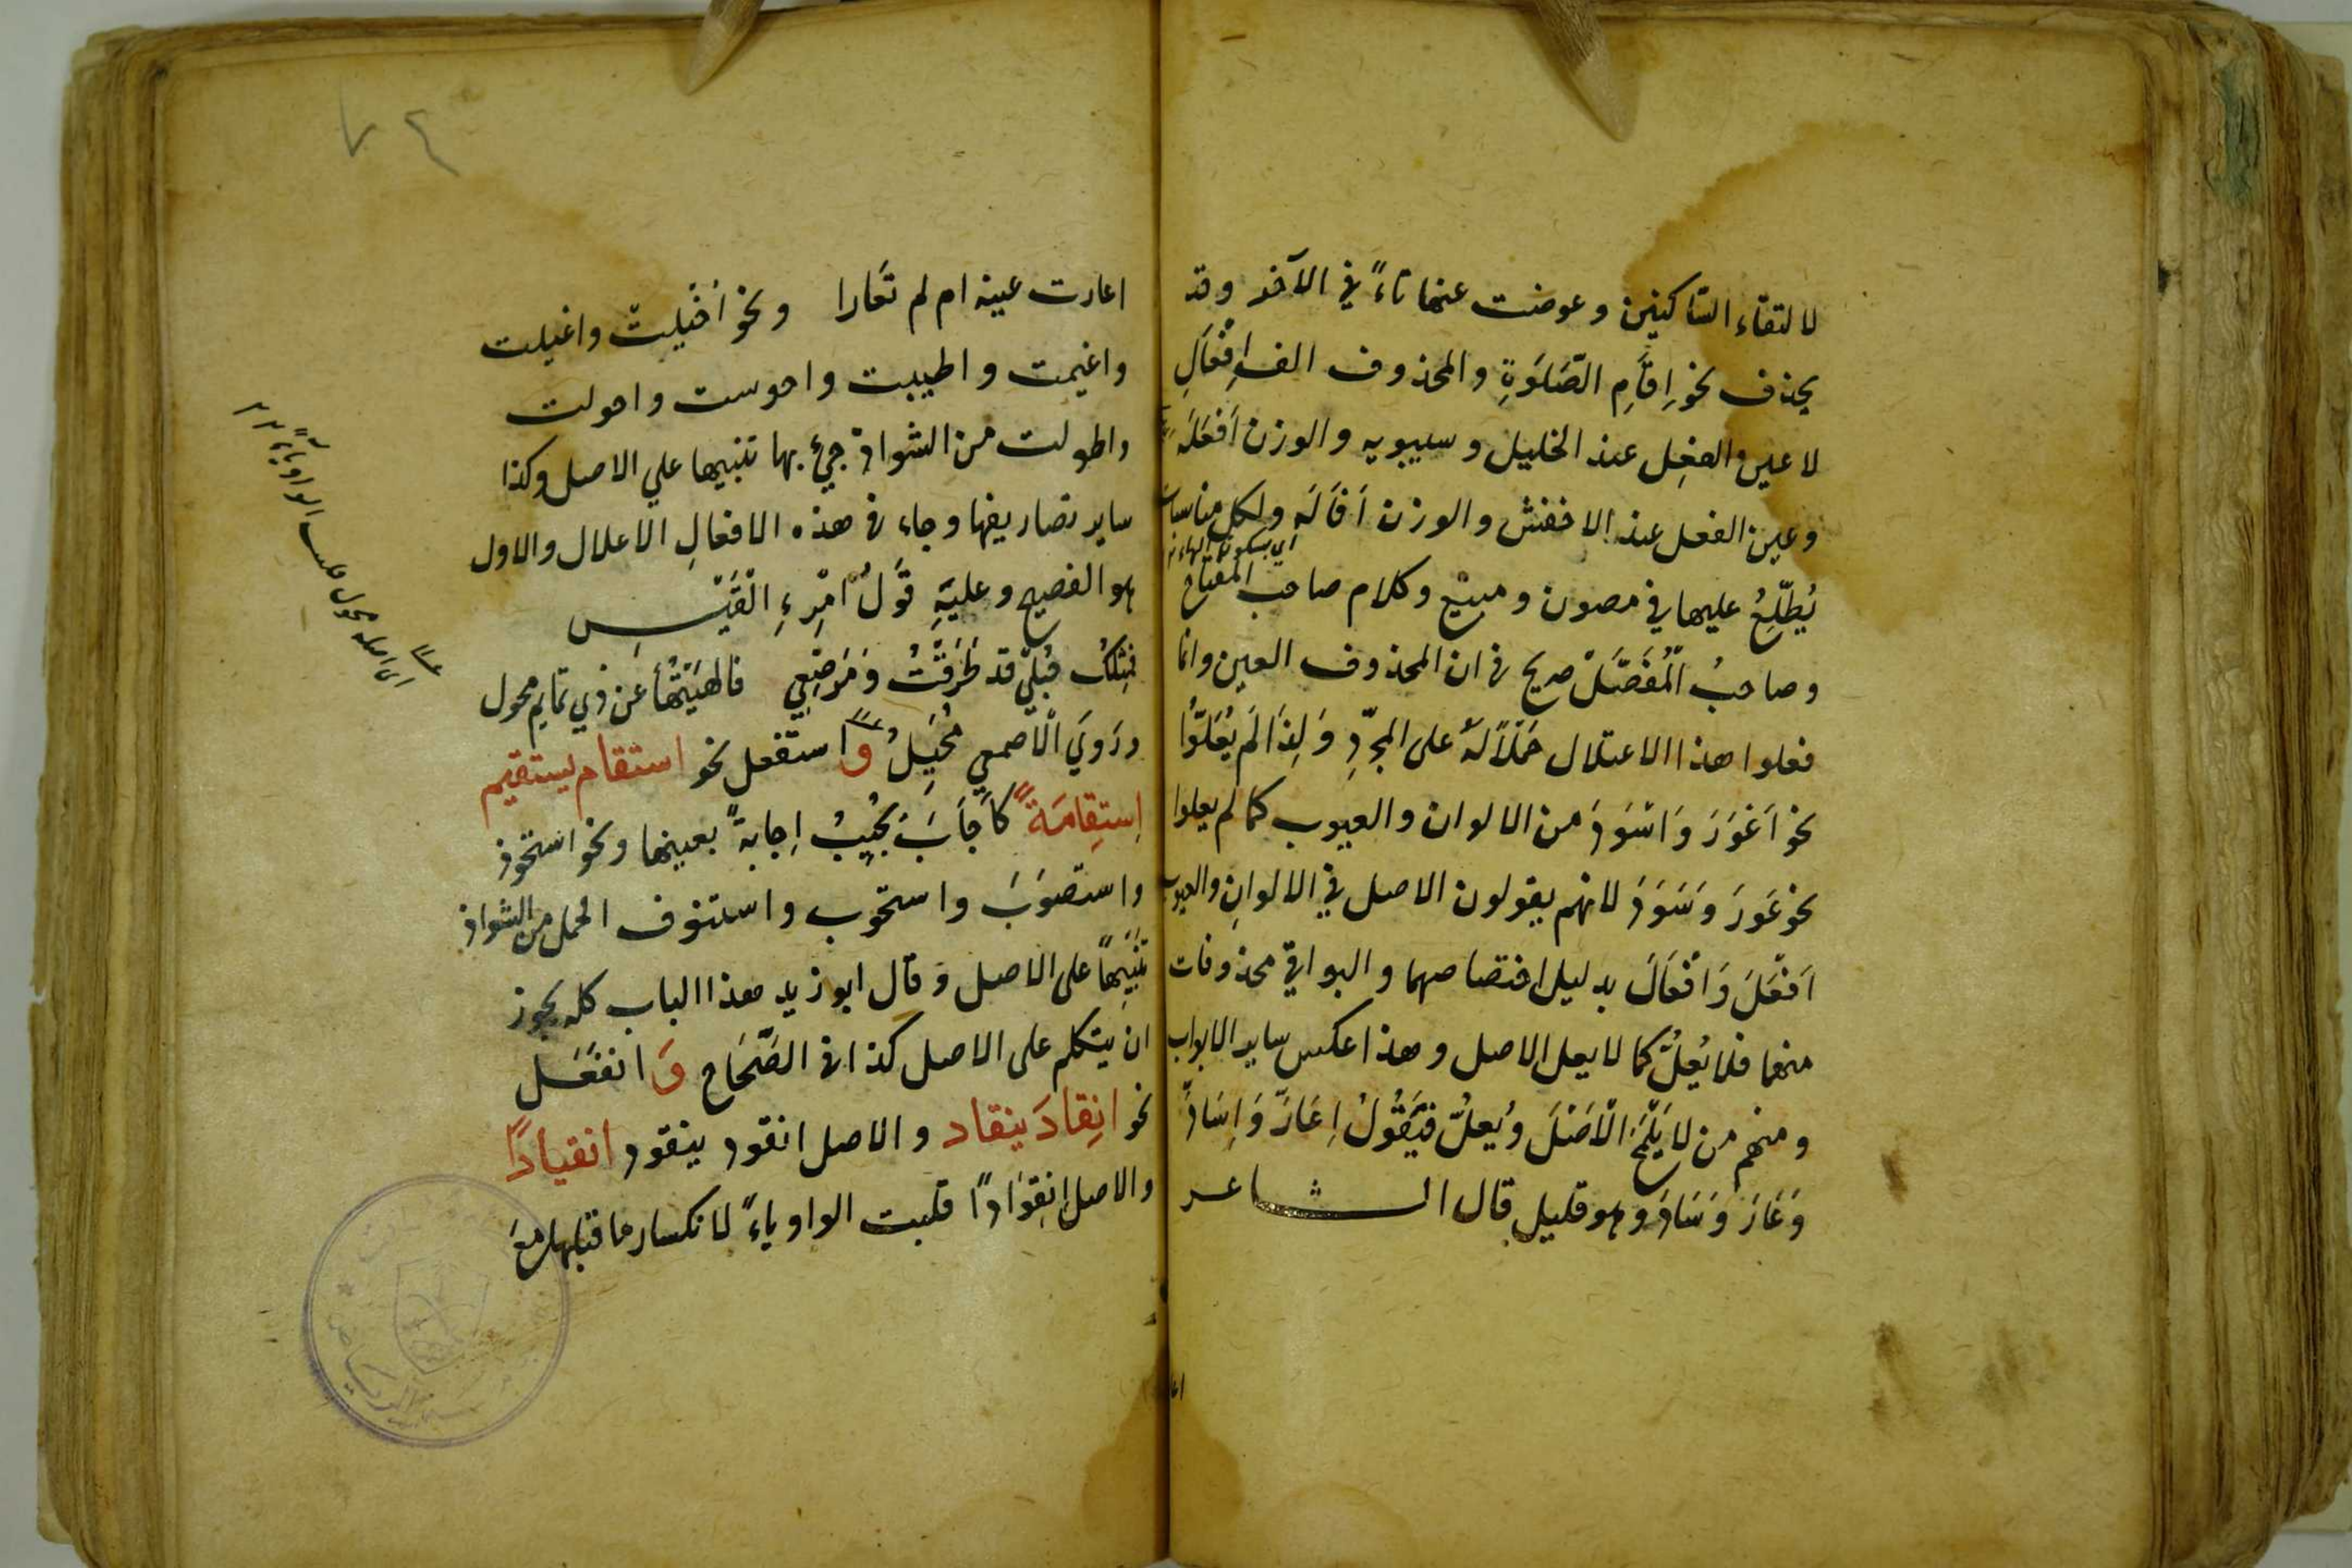 لالتقاء السّاكنين وعوضت عنها تاءً في الآخر وقد
يحذف نحو اِقَامِ الصَّلَوةِ والمحذوف الف اِفْعَالِ
لا عين الفعِل عند الخليل وسيبويه والوزن اَفْعَلَة
وعين الفعل عند الاخفش والوزن اَفَالَه ولكل مناسبات
اي بسكون الهاء
يُطَّلِعُ عليها في مصون ومبيْع وكلام صاحب المفتاح
وصاحبُ الْمُفَصَّلْ صريح في ان المحذوف العين وانما
فعلوا هذا الاعتلال حَمْلاً لَهُ على المجرّدِ وَلِذَا لَم يُعِلّوُا
نحو اَعْوَرَ وَاسْوَدَ من الالوان والعيوب كما لم يعلوا
نحو عَوِرَ وَسَوِدَ لانهم يقولون الاصل في الالوانِ والعيوب
اَفْعَلَّ وَافْعَالَّ بدليل اختصاصهما والبواقي محذوفات
منهما فلا يُعلّ كما لا يعل الاصل وهذا عكس ساير الابواب
ومنهم من لا يَلْمَحُ الْاَصْلَ ويُعلُّ فيَقُولُ اِعَارَّ وَاِسَادَّ
وَعَارَ وَسَادَ وهو قليل قال الشاعر
اعا
٧٤
اعارت عينه ام لم تعَارا ونحو اَخْيَلتْ واغيلت
واغيمت واطيبت واحوست واحولت
واطولت من الشواذ جيءَ بها تنبيها علي الاصل وكذا
ساير تصاريفها وجاء في هذه الافعالِ الاعلال والاول
هو الفصيح وعليَهِ قَولُ امْرِءِ الْقَيْسِ
فمِثْلكِ حُبْليْ قد طَرَقْتُ وَمُرْضِعٍ فالهَيْتُهُا عن ذي تمايم محول
ورَوَيَ الْاصمعي مُخْيِلُ وَاستفعل نحو استقام يستقيم
اِستِقامَةً كَاَجَابَ يُجِيْبُ اِجابةً بعينها ونحو استحوذ
واستصْوَبَ واستجوب واستنوق الجمل من الشواذ
تنْبِيْهاً على الاصل وَقال ابو زيد هذا الباب كله يجوز
ان يتكلم على الاصل كذا في الصَّحَاح وَانفَعَل
نحو انِقادَ ينقاد والاصل انقود ينقود انقيادًا
والاصل اِنقِوَادًا قلبت الواو ياءً لانكسار ما قبلها مع
اى اصله محول قلبت الواو ياءً